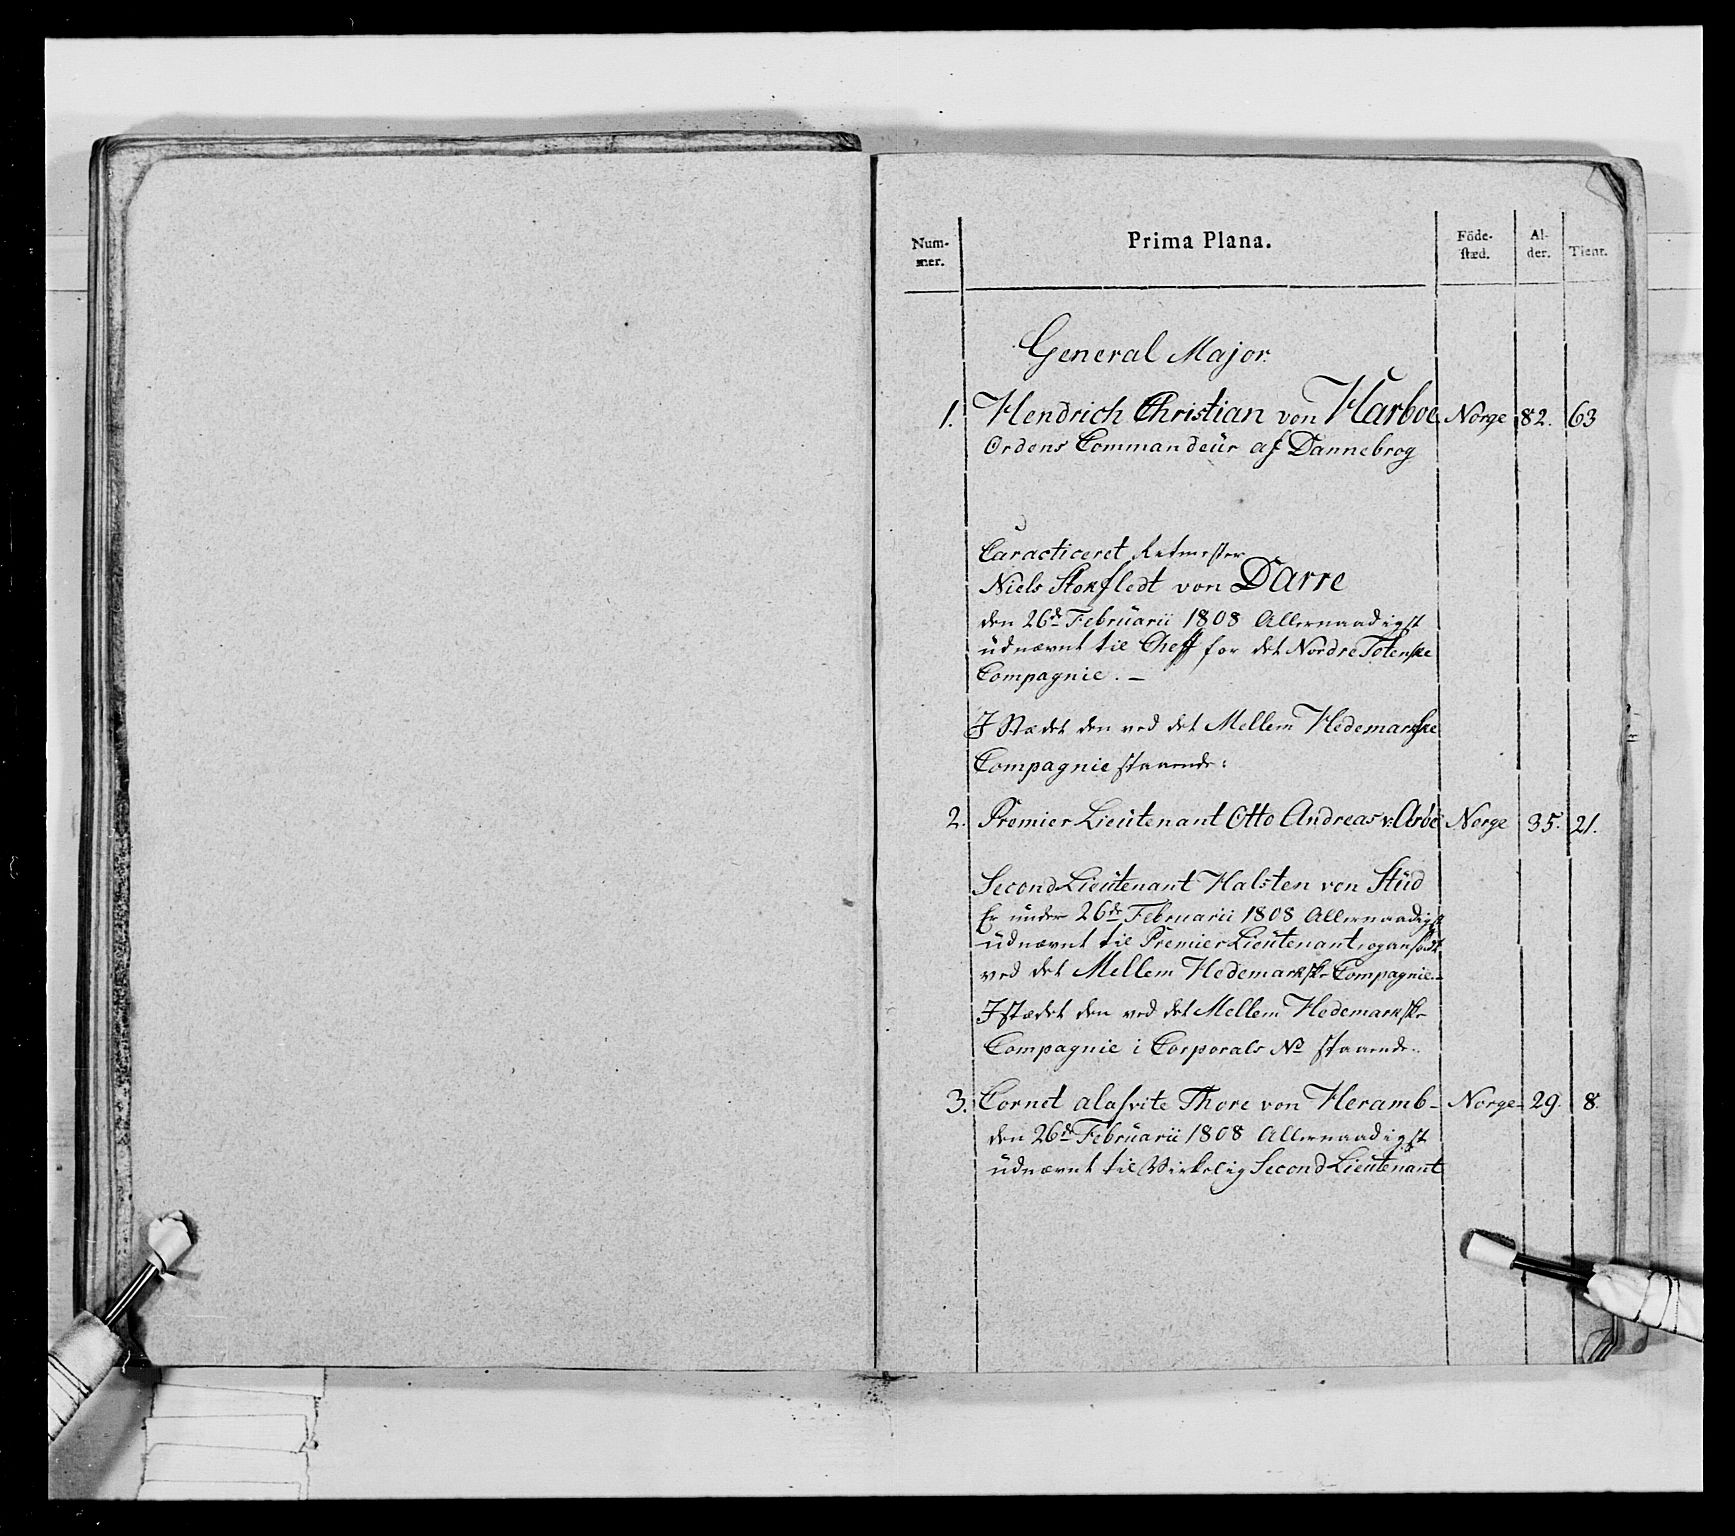 Num-mer. Prima Plana. Föde-stæd. Al-der. Tient.
General Major.
1. Hendrich Christian von Harboe Norge 82. 63
Ordens Commandeür af Dannebrog
Caracticeret Retmester
Niels Stokfledt von Darre
den 26de Februarii 1808 Allernaadigst
üdnævnt til Cheff for det Nordre Totenske
Compagnie. —
I Stædet den ved det Mellem Hedemarkske
Compagnie staaende:
2. Premier Lieutenant Otto Andreas v: Arbo Norge 35. 21.
Second Lieutenant Halsten von Stüd
Er ünder 26de Februarii 1808 Allernaadigst
üdnævnt til Premier Lieutenant, og ansadt
ved det Mellem Hedemarkske Compagnie. —
I stædet den ved det Mellem Hedemarkske
Compagnie i Corporals No staaende.
3. Cornet alasvite Thore von Heramb - Norge - 29. 8.
den 26de Februarii 1808 Allernaadigst
üdnævnt til Virkelig Second Lieutenant